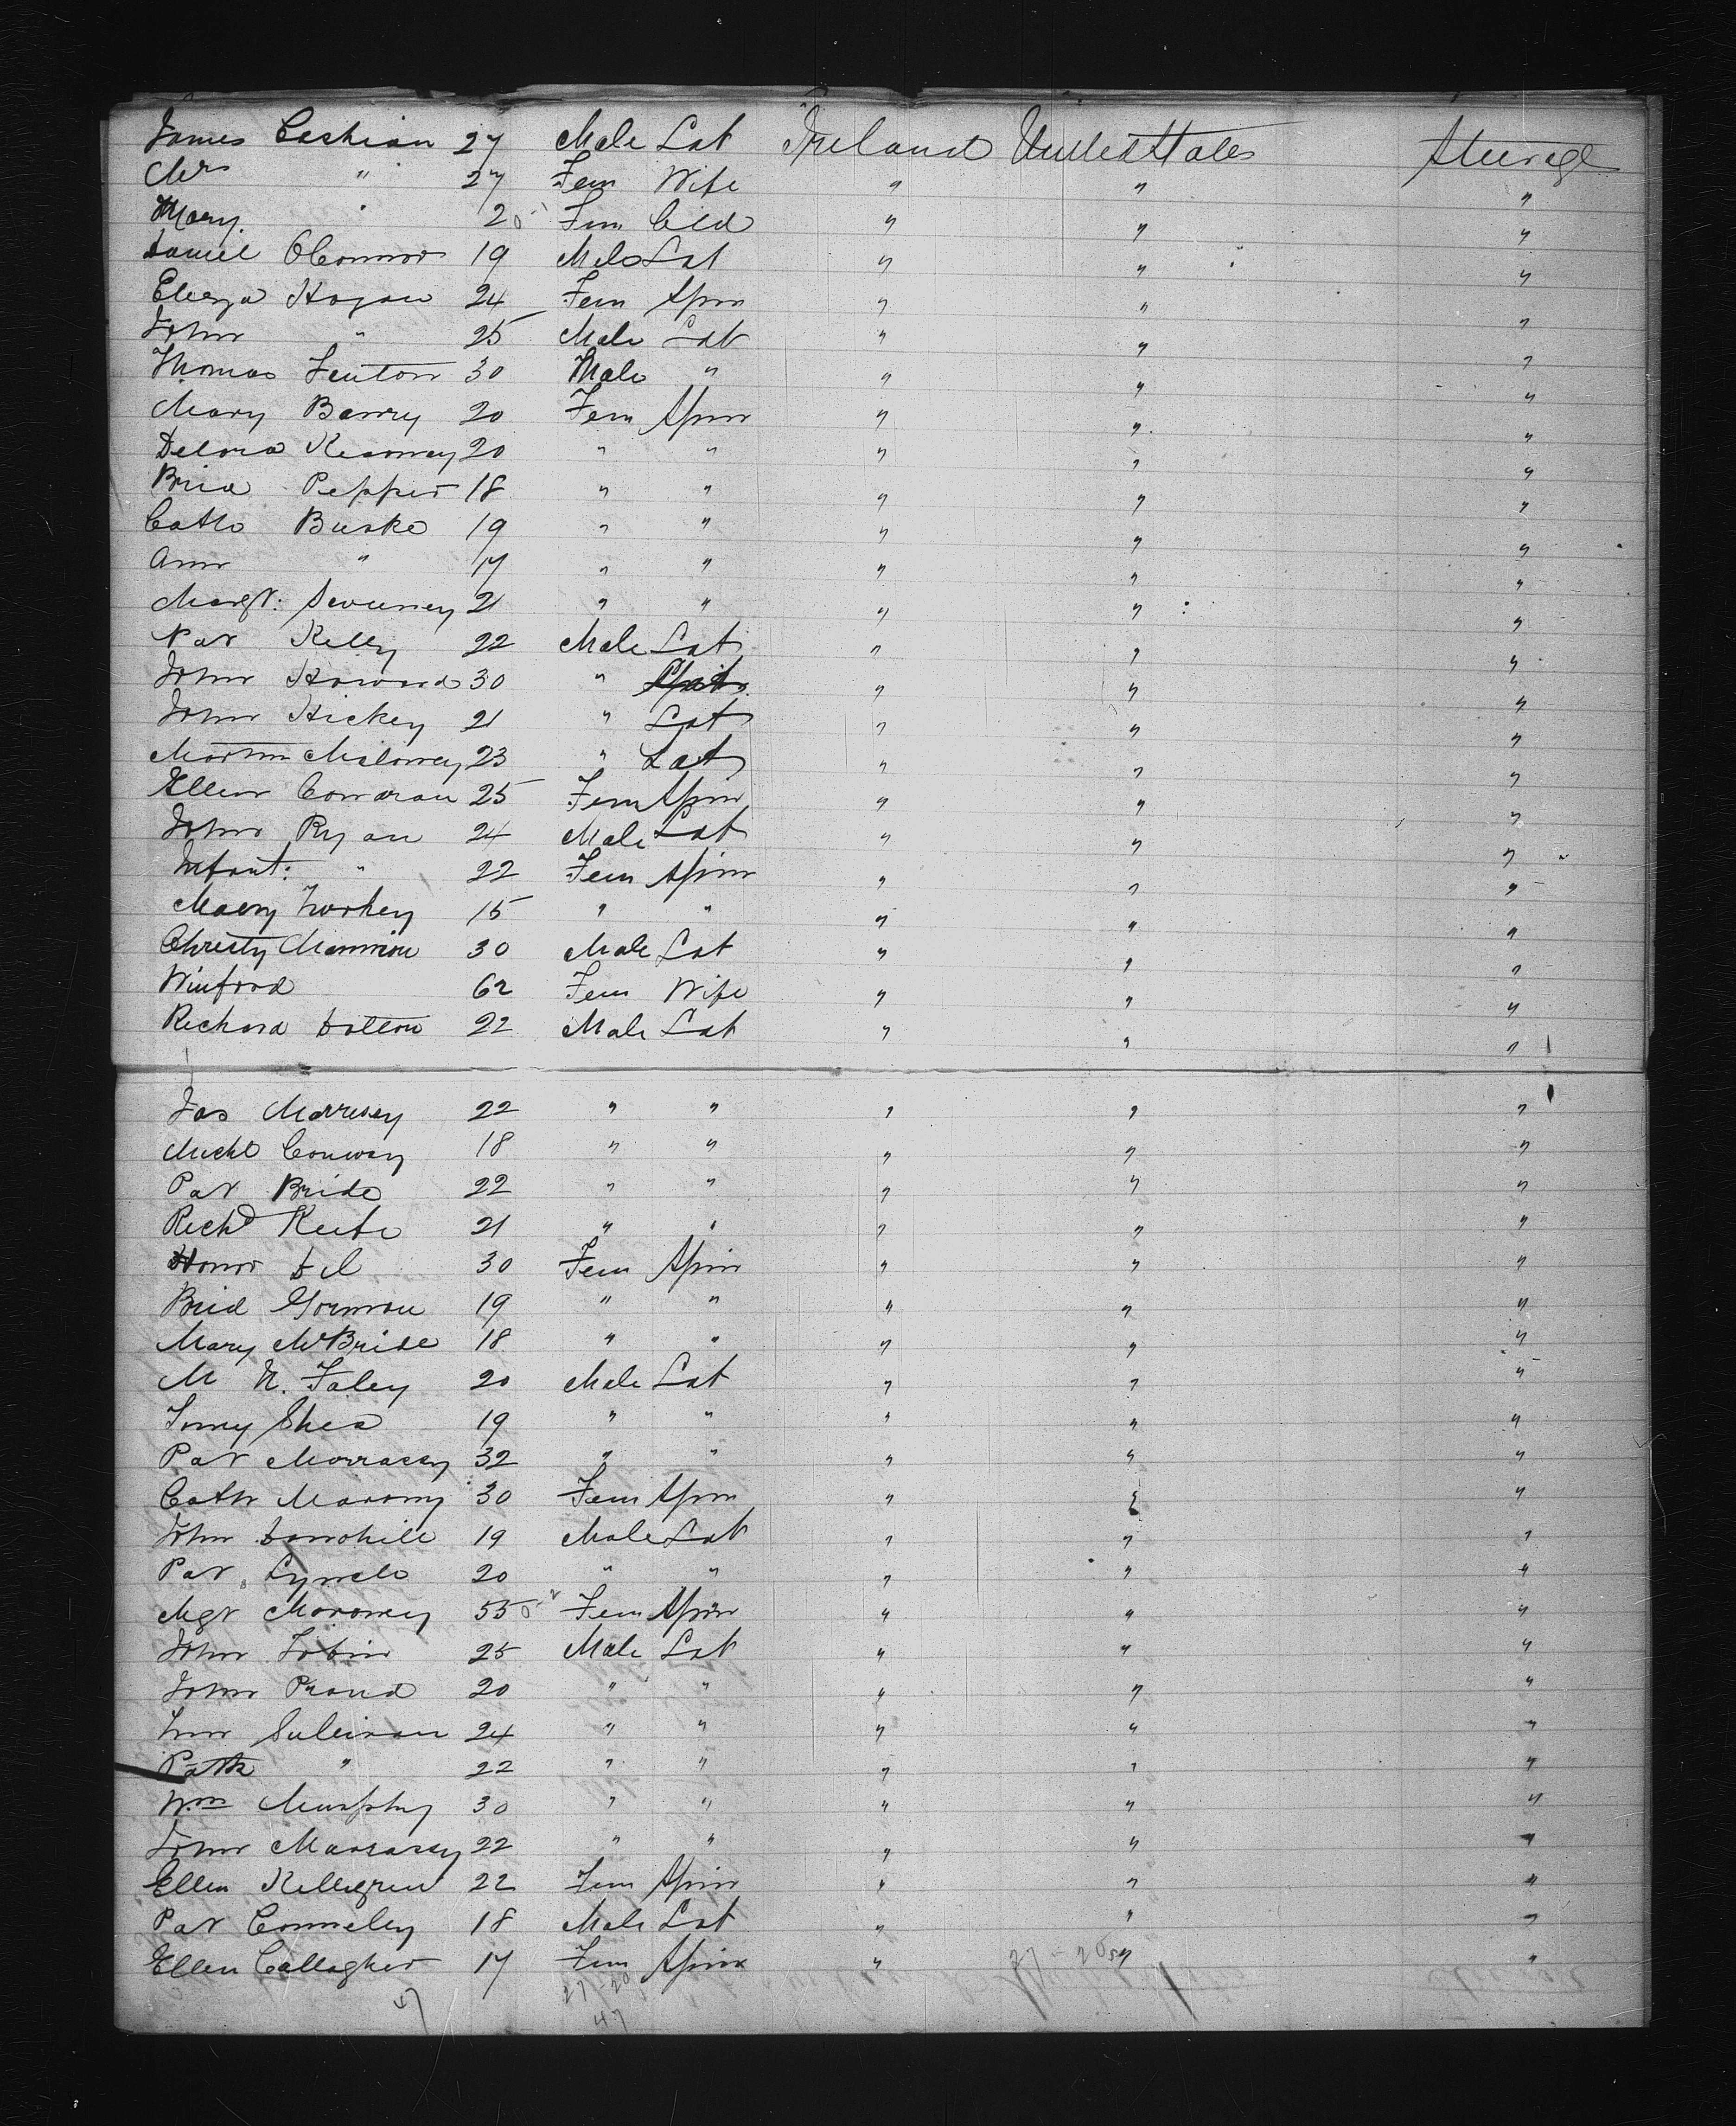 James Cashian 27 Male Lab Ireland United States Steerage
Mrs " 27 Fem Wife " " "
Mary " 2 Fem Cild " " "
Daniel OConnor 19 Male Lab " " "
Eleza Hogan 24 Fem Spin " " "
John " 25 Male Lab " " "
Thomas Fenton 30 Male " " " "
Mary Barry 20 Fem Spin " " "
Delora 20 " " " " "
Brid Pepper 18 " " " " "
Cath Burke 19 " " " " "
Ann " 17 " " " " "
Margt: Sweeney 21 " " " " "
Pat Kelly 22 Male Lab " " "
John Howard 30 " " " "
John Hickey 21 " Lab " " "
Martin Maloney 23 " Lab " " "
Ellen Condran 25 Fem Spin " " "
John Ryan 24 Male Lab " " "
Infant: " 22 Fem Spin " " "
Maery 15 " " " " "
Christy Mannion 30 Male Lab " " "
Winford 62 Fem Wife " " "
Richard Dolton 22 Male Lab " " "
Jas Morrisey 22 " " " " "
Michl Conway 18 " " " " "
Pat Bride 22 " " " " "
Richd Keefe 21 " " " " "
Honor 30 Fem Spin " " "
Brid Gorman 19 " " " " "
Mary McBride 18 " " " " "
M N. Foley 20 Male Lab " " "
Shea 19 " " " " "
Pat Morrassy 32 " " " " "
Cath Marony 30 Fem Spin " " "
John Donohill 19 Male Lab " " "
Pat Lynch 20 " " " " "
Mgt Moroney 55 Fem Spin " " "
John Tobin 25 Male Lab " " "
John Proud 20 " " " " "
Sulivan 24 " " " " "
Patk " 22 " " " " "
Wm Murphy 30 " " " " "
John Marrassy 22 " " " " "
Ellen Kellegrew 22 Fem Spin " " "
Pat Conneley 18 Male Lab " " "
Ellen Callagher 17 Fem Spin " " "
47 27-20
47